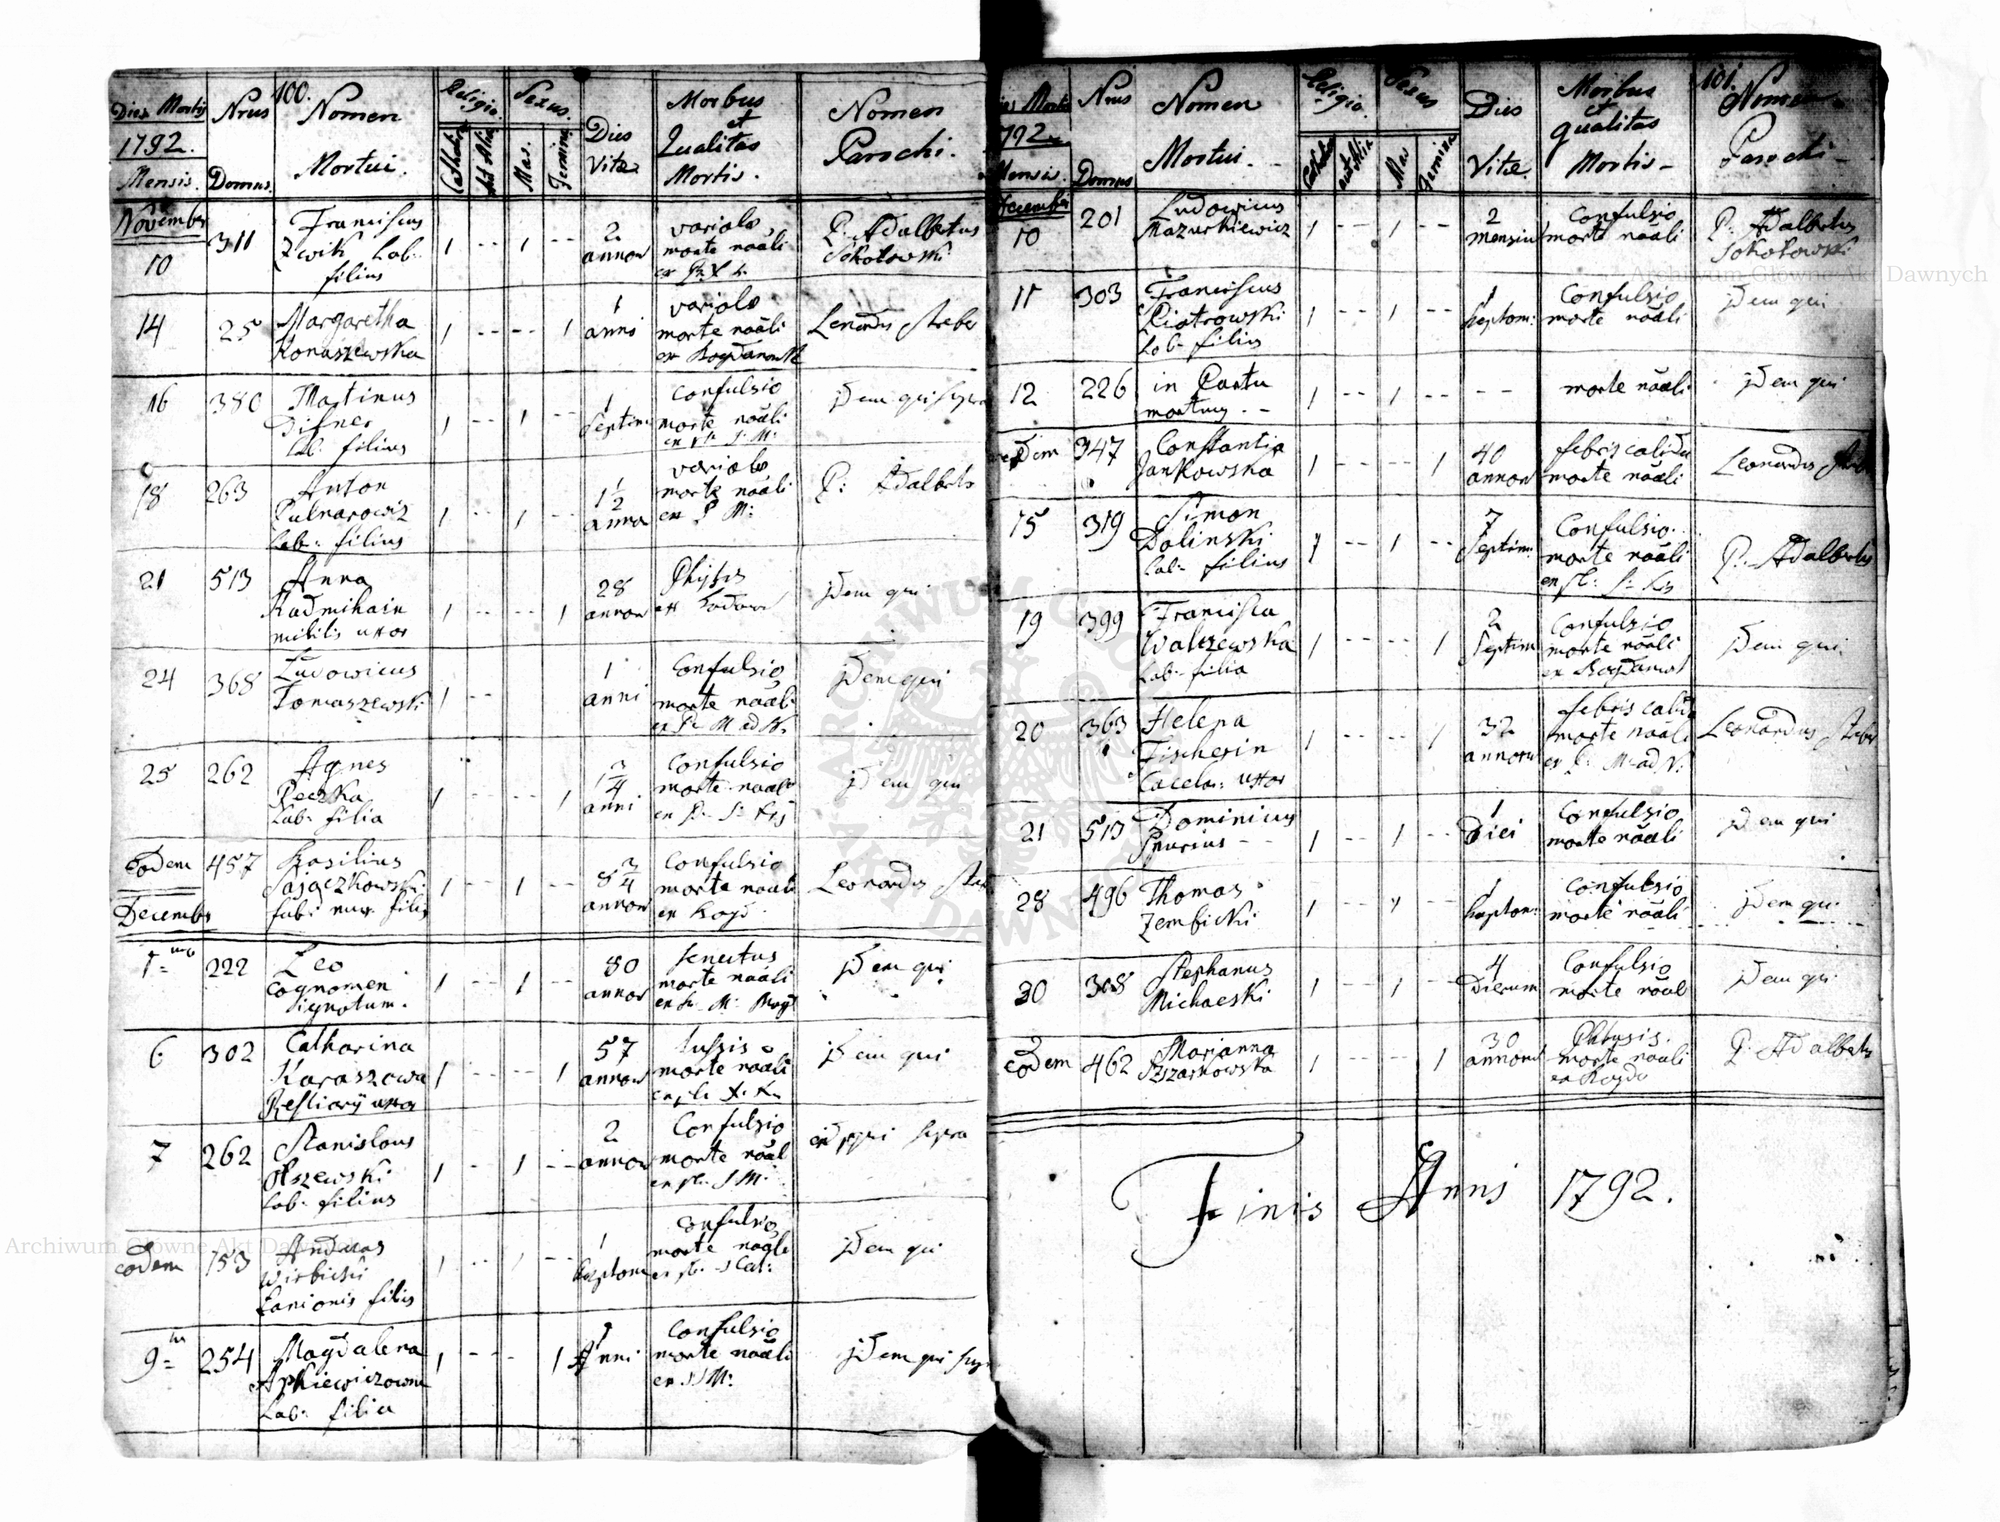 100.
Dies Mortis
1792.
Mensis.
Nrus
Domus.
Nomen
Mortui.
Religio.
Catholica
aut Alia
Sexus.
Mas.
Femina
Dies
Vitæ
Morbus
et
Qualitas
Mortis.
Nomen
Parochi.
November
10
311
Franciscus
Zwik Lab:
filius
1 -- 1 --
2
annor
variola
morte nāāli
P: Adalbertus
Sokołowski
14
25
Margaretha
Konaszewska
1 -- -- 1
1
anni
variola
morte nāāli
Leonardus
16
380
Martinus
Difner
Lab: filius
1 -- 1 --
1
Septim
Confulsio
morte nāāli
Idem qui supra
18
263
Anton
Pulnarowiz
Lab: filius
1 -- 1 --
1 1/2
anno
variola
morte nāāli
ex P M:
P: Adalbertus
21
513
Anna
Kadmihain
militis uxor
1 -- -- 1
28
annor
Phtysis
Idem qui
24
368
Ludowicus
Tomaszewski
1 --
1
anni
Confulsio
morte nāāli
ex P: M ad N:
Idem qui
25
262
Agnes
Reczka
Lab: filia
1 -- -- 1
1 3/4
anni
Confulsio
morte nāāli
Idem qui
Eodem
457
Basilius
Sajączkowski
fab: mur. filius
1 -- 1 --
8 3/4
annor
Confulsio
morte nāāli
Leonardus
Decembr
1=mo
222
Leo
cognomen
ignotum.
1 -- 1 --
80
annor
senectus
morte nāāli
Idem qui
6
302
Catharina
Karaszowa
uxor
1 -- -- 1
57
annor
tussis
morte nāāli
Idem qui
7
262
Stanislaus
Olszewski
Lab: filius
1 -- 1 --
2
annor
Confulsio
morte nāāl
qui supra
Eodem
153
Andreas
Wirbicki
Lanionis filius
1 -- 1 --
1
heptom
Confulsio
morte nāāli
Idem qui
9=
254
Magdalena
Lab: filia
1 -- -- 1
1
Anni
Confulsio
morte nāāli
ex S M:
Idem qui supr
101.
Dies Mortis
1792
Mensis.
Nrus
Domus
Nomen
Mortui.
Religio
Catholica
aut Alia
Sexus
Mas
Femina
Dies
Vitæ
Morbus
et
qualitas
Mortis
Nomen
Parochi
December
10
201
Ludowicus
Mazurkiewicz
1 -- 1 --
2
mensium
Confulsio
morte nāāli
P: Adalbertus
Sokołowski
11
303
Franciscus
Piotrowski
Lab: filius
1 -- 1 --
1
heptom:
Confulsio
morte nāāli
Idem qui
12
226
in Partu
mortuus --
1 -- 1 --
--
morte nāāli
Idem qui
Eodem
347
Constantia
Jankowska
1 -- -- 1
40
annor
febris calida
morte nāāli
Leonardus
15
319
Simon
Dolinski
Lab: filius
1 -- 1 --
7
Septim:
Confulsio
morte nāāli
P: Adalbertus
19
399
Francisca
Walczewska
Lab: filia
1 -- -- 1
2
Septim
Confulsio
morte nāāli
Idem qui
20
363
Helena
Fischerin
uxor
1 -- -- 1
32
annoru
febris calida
morte nāāli
ex P: M: ad N:
Leonardus
21
513
Dominicus
Spurius --
1 -- 1 --
1
Diei
Confulsio
morte nāāli
Idem qui
28
496
Thomas
Zembicki
1 -- 1 --
1
heptom:
Confulsio
morte nāāli
Idem qui
30
308
Stephanus
Michaeski
1 -- 1 --
4
Dierum
Confulsio
morte nāāl
Idem qui
Eodem
462
Marianna
1 -- -- 1
30
annoru
Phtysis.
morte nāāli
P: Adalbertus
Finis Anni 1792.
Archiwum Główne Akt Dawnych
Archiwum Główne Akt Dawnych
ARCHIWUM GŁÓWNE
AKT DAWNYCH